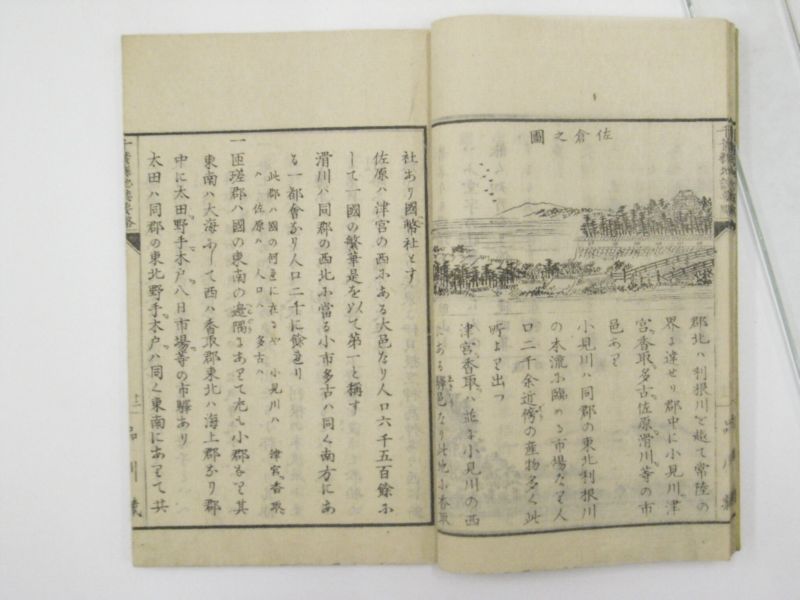 佐倉之圖
郡北ハ利根川を越て常陸の
界に達せり郡中に小見川津
宮香取多古佐原滑川等の市
邑あり
小見川ハ同郡の東北利根川
の本流に臨める市場なり人
口二千余道傍の産物多く此
町より出つ
津宮香取ハ並に小見川の西
にある驛邑なり此地に香取
社あり國幣社とす
佐原ハ津宮の西にある大邑なり人口六千五百餘に
して一國の繁華是を以て第一と稱す
滑川ハ同郡の西北に當る小市多古ハ同く南方にあ
る一都會なり人口二千に餘れり
此郡ハ國の何邊に在るや 小見川ハ 津宮香取
ハ 佐原ハ 人口ハ 多古ハ
一匝瑳郡ハ國の東南の邊隅にありて尤も小郡なり其
東南ハ大海にして西ハ香取郡東北ハ海上郡なり郡
中に太田野手木戸八日市場等の市驛あり
太田ハ同郡の東北野手木戸ハ同く東南にありて其